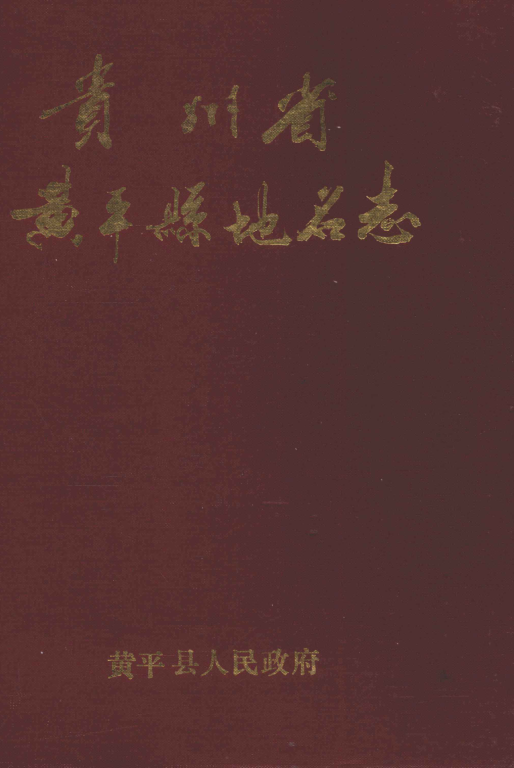 貴州省
黄平縣地名志
黄平县人民政府